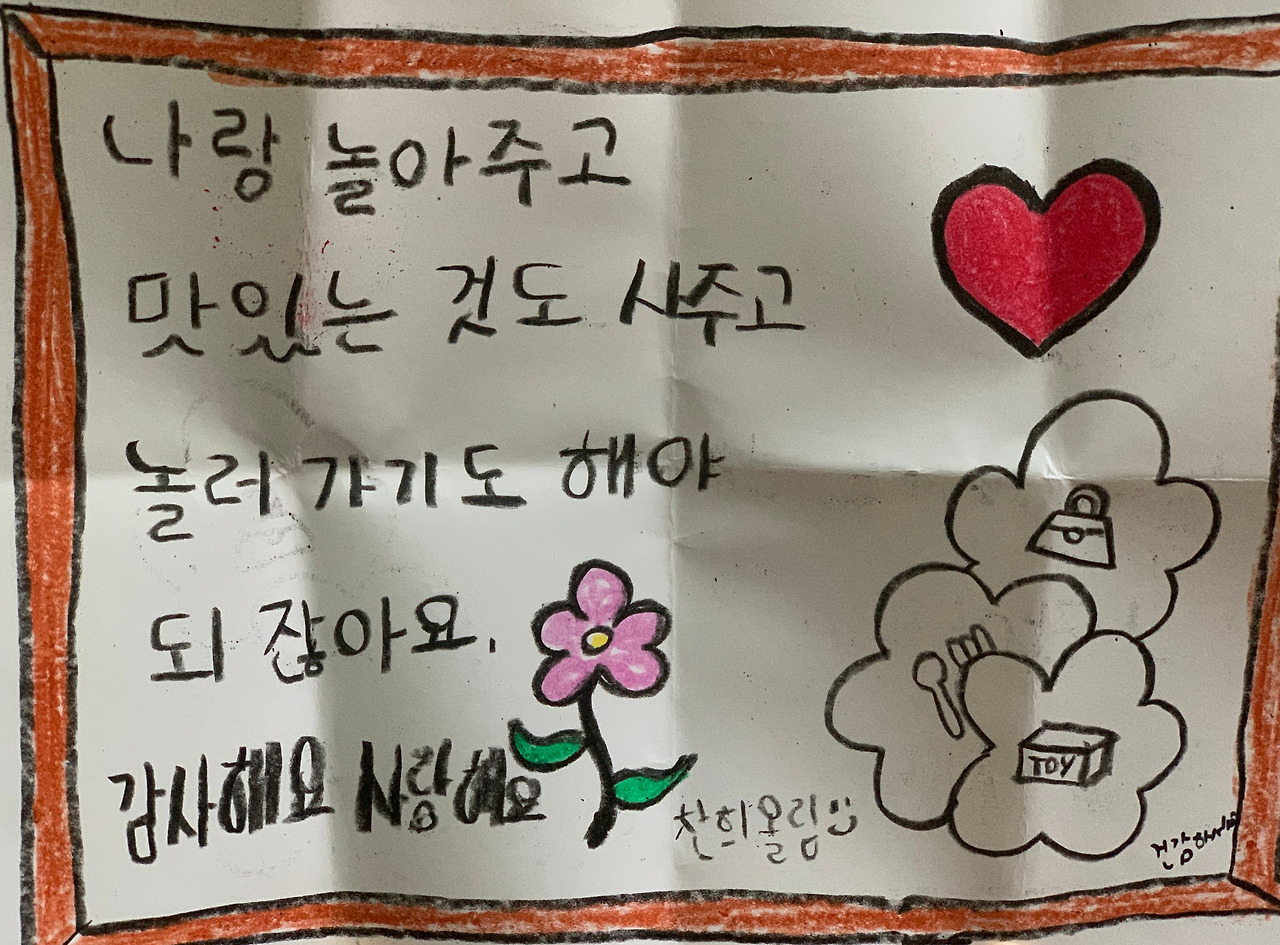 나랑 놀아주고
맛있는 것도 사주고
놀러 가기도 해야
되 잖아요.
감사해요 사랑해요
찬희올림
TOY
건강하세요